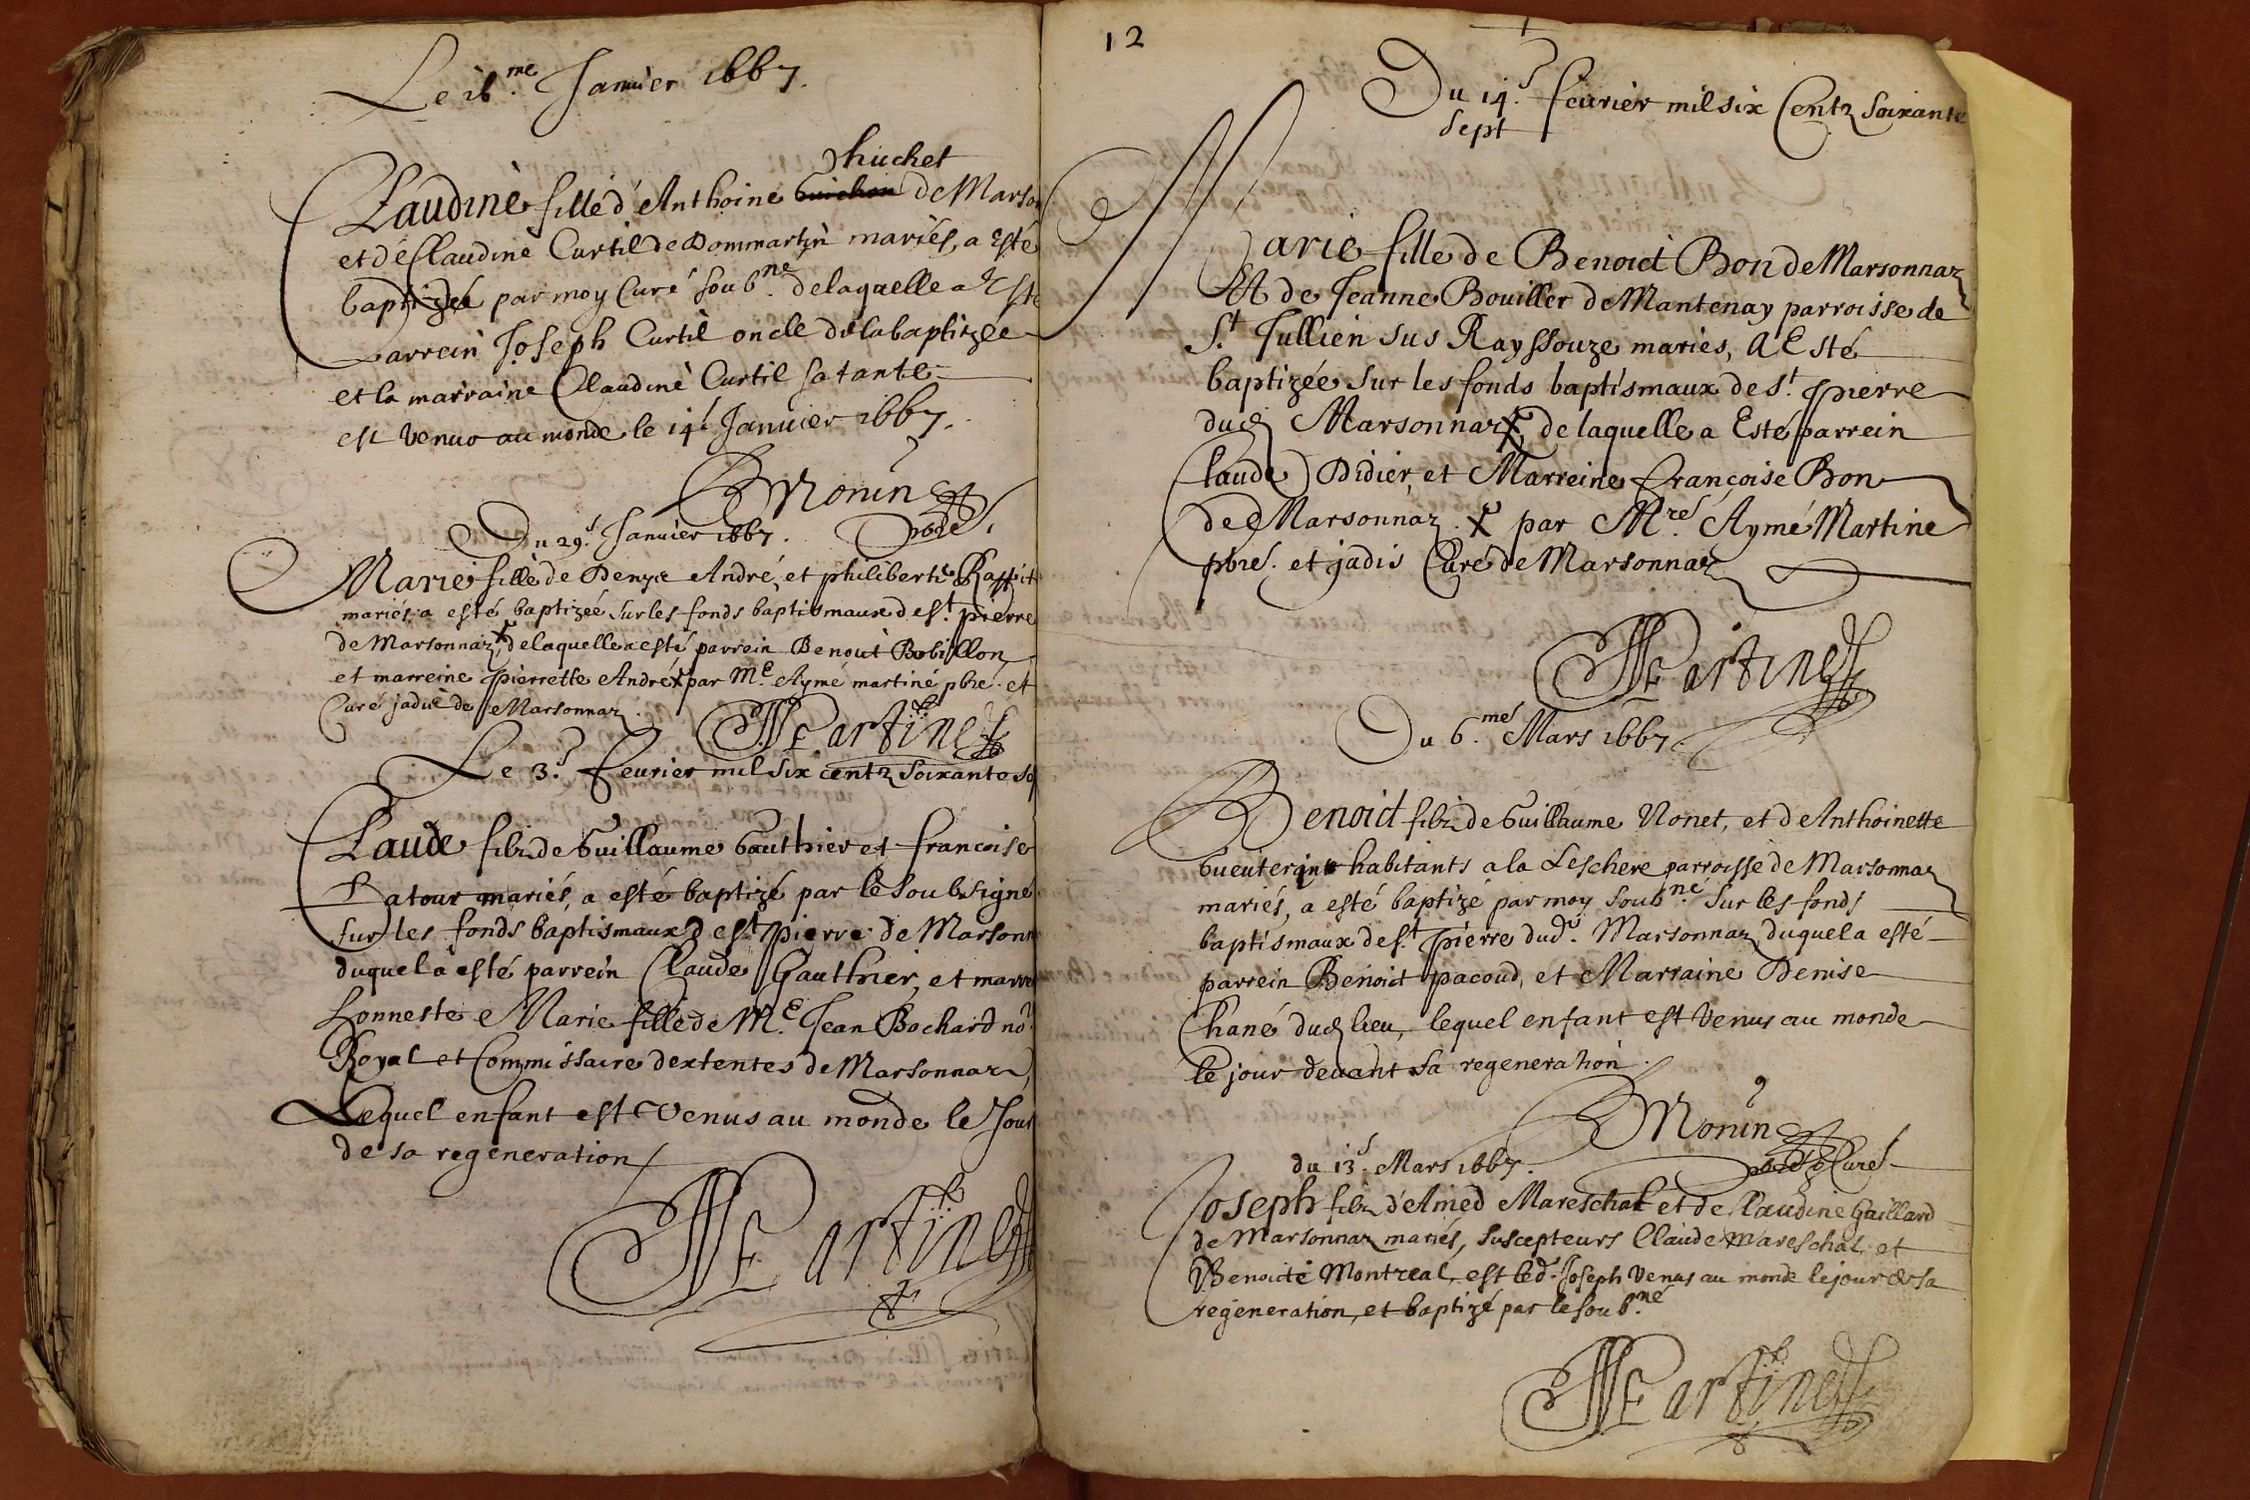 Le 16.me Januier 1667.
Phuchet
Claudine fille d'Anthoine de Marson
et de Claudine Curtil de Dommartin mariés, a Esté
baptizée par moy Curé soub.ne delaquelle a Esté
Parrein Joseph Curtil oncle dela baptizée
et la marraine Claudine Curtil sa tante
est venuo au monde le 14.e Januier 1667.
BMonin
pbre
Du 29.e Januier 1667.
Marie fille de Denyse André, et philiberte
mariés a esté baptizée sur les fonds baptismaux de s.t pierre
de Marsonnaz delaquelle a esté parrein Benoict Bobillon
et marreine pierrette André par M.e Aymé martine pbre. et
Curé jadic de Marsonnaz.
Martine
Le 3.e feurier mil six centz soixante se
Claude filz de Guillaume Gauthier et francoise
Latour mariés, a esté baptizé par le soubsigné
sur les fonds baptismaux de s.t pierre de Marsonn
duquel a esté parrein Claude Gauthier, et marre
honneste Marie fille de M.e Jean Bochard no.
Royal et Commissaire dextentes de Marsonnaz,
Lequel enfant est venus au monde le Jour
de sa regeneration
Martine
12
Du 14.e feurier mil six Centz soixante
sept
Marie fille de Benoict Bon de Marsonnaz
Et de Jeanne Bouiller de Mantenay parroisse de
S.t Jullien sus Rayssouze mariés, a Esté
baptizée sur les fonds baptismaux de s.t pierre
dud Marsonnaz, delaquelle a Esté parrein
Claude Didier, et Marreine françoise Bon
de Marsonnaz. par M.re Aymé Martine
pbre. et jadis Curé de Marsonnaz
Martine
Du 6.me Mars 1667.
Benoict filz de Guillaume Nonet, et de Anthoinette
habitants a la Leschere parroisse de Marsonnaz
mariés, a esté baptizé par moy soub.né sur les fonds
baptismaux de s.t pierre dud. Marsonnaz duquel a esté
parrein Benoict pacoud, et Marraine Denise
Chané dud lieu, lequel enfant est venus au monde
le jour deuant sa regeneration.
BMonin
pbre Curé
du 13.e Mars 1667.
Joseph filz d'Amed Mareschal et de Claudine Gaillard
de Marsonnaz mariés, suscepteurs Claude Mareschal, et
Benoicte Montreal, est led. Joseph venus au monde le jour de sa
regeneration, et baptizé par le soub.né
Martine